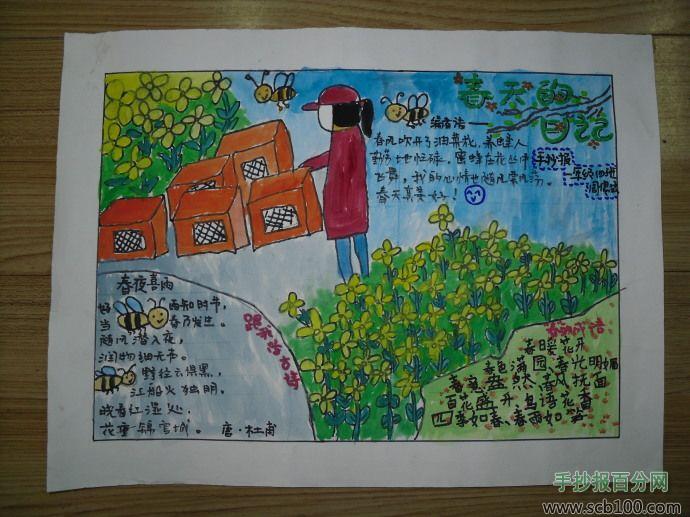 春天的
日记
编者语
春风吹开了油菜花，养蜂人
勤劳地忙碌，蜜蜂在花丛中
飞舞，我的心情也随风飘荡。
春天真美好！
手抄报
一年级四班
春夜喜雨
好雨知时节，
当春乃发生。
随风潜入夜，
润物细无声。
野径云俱黑，
江船火独明，
晓看红湿处，
花重锦官城。 唐·杜甫
跟我学古诗
春的成语
春暖花开
春色满园、春光明媚
春意盎然、春风拂面
百花盛开、鸟语花香
四季如春、春雨如
手抄报百分网
www.scb100.com